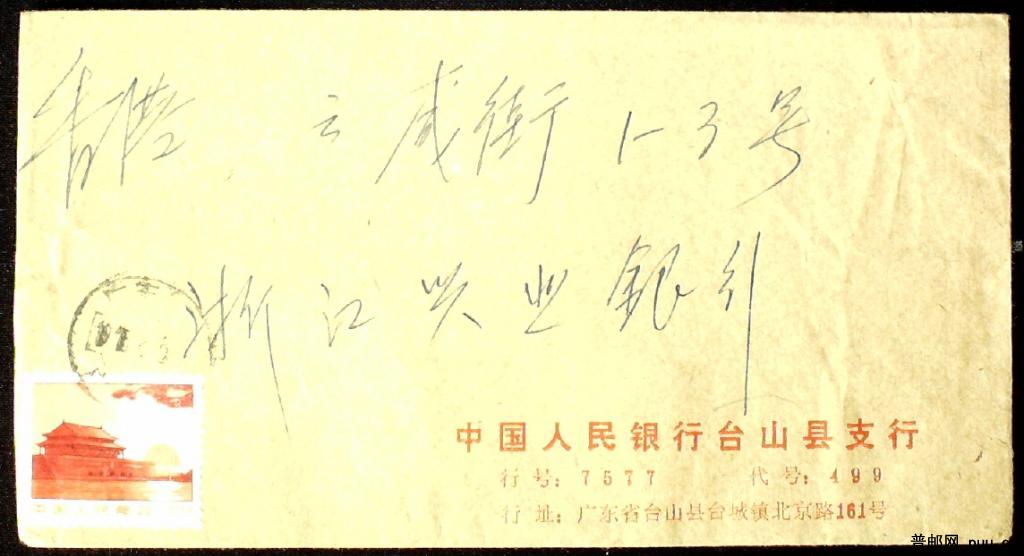 香港 云咸街 1-3号
浙江兴业銀行
中国人民邮政
中国人民银行台山县支行
行号: 7577 代号: 499
行址: 广东省台山县台城镇北京路161号
普邮网